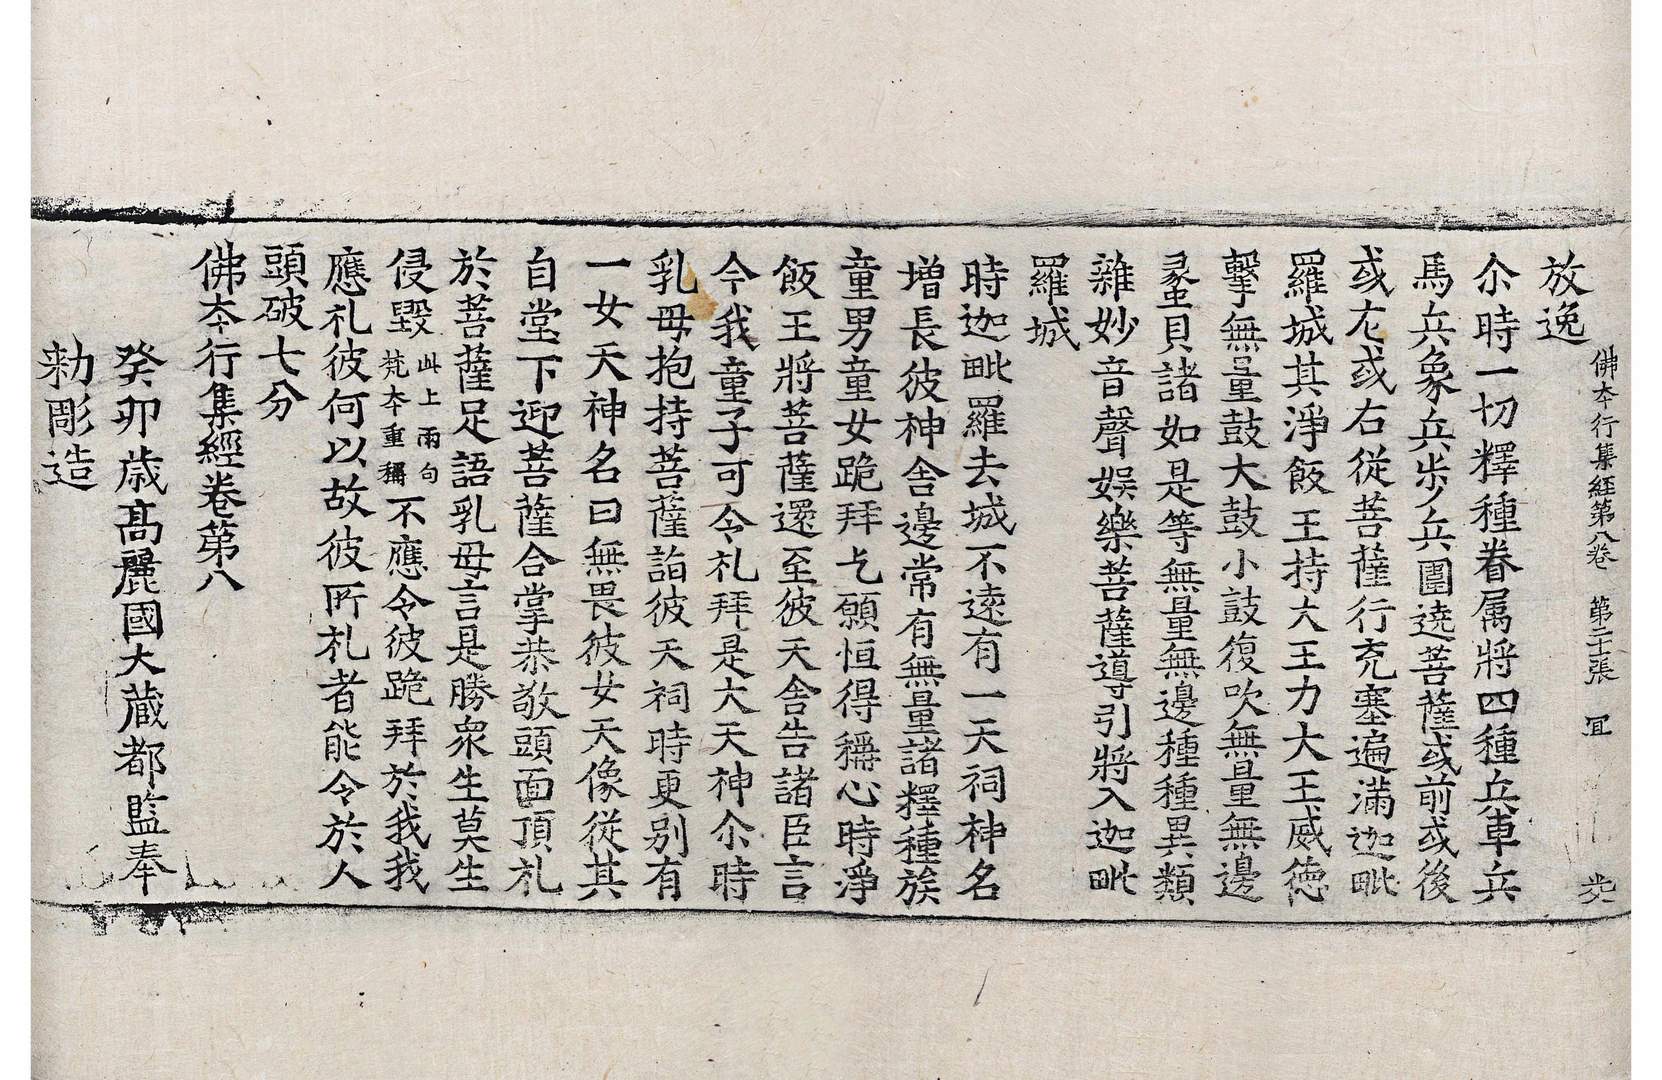 佛本行集經第八卷 第二十張 冝
放逸
尒時一切釋種眷属將四種兵車兵
馬兵象兵步兵圍遶菩薩或前或後
或左或右從菩薩行充塞遍滿迦毗
羅城其淨飯王持大王力大王威德
擊無量鼓大鼓小鼓復吹無量無邊
蠡貝諸如是等無量無邊種種異類
雜妙音聲娛樂菩薩導引將入迦毗
羅城
時迦毗羅去城不遠有一天祠神名
增長彼神舍邊常有無量諸釋種族
童男童女跪拜乞願恒得稱心時淨
飯王將菩薩還至彼天舍告諸臣言
今我童子可令礼拜是大天神尒時
乳母抱持菩薩詣彼天祠時更别有
一女天神名曰無畏彼女天像從其
自堂下迎菩薩合掌恭敬頭面頂礼
於菩薩足語乳母言是勝衆生莫生
侵毀此上兩句梵本重稱不應令彼跪拜於我我
應礼彼何以故彼所礼者能令於人
頭破七分
佛本行集經卷第八
癸卯歳高麗國大藏都監奉
勑彫造